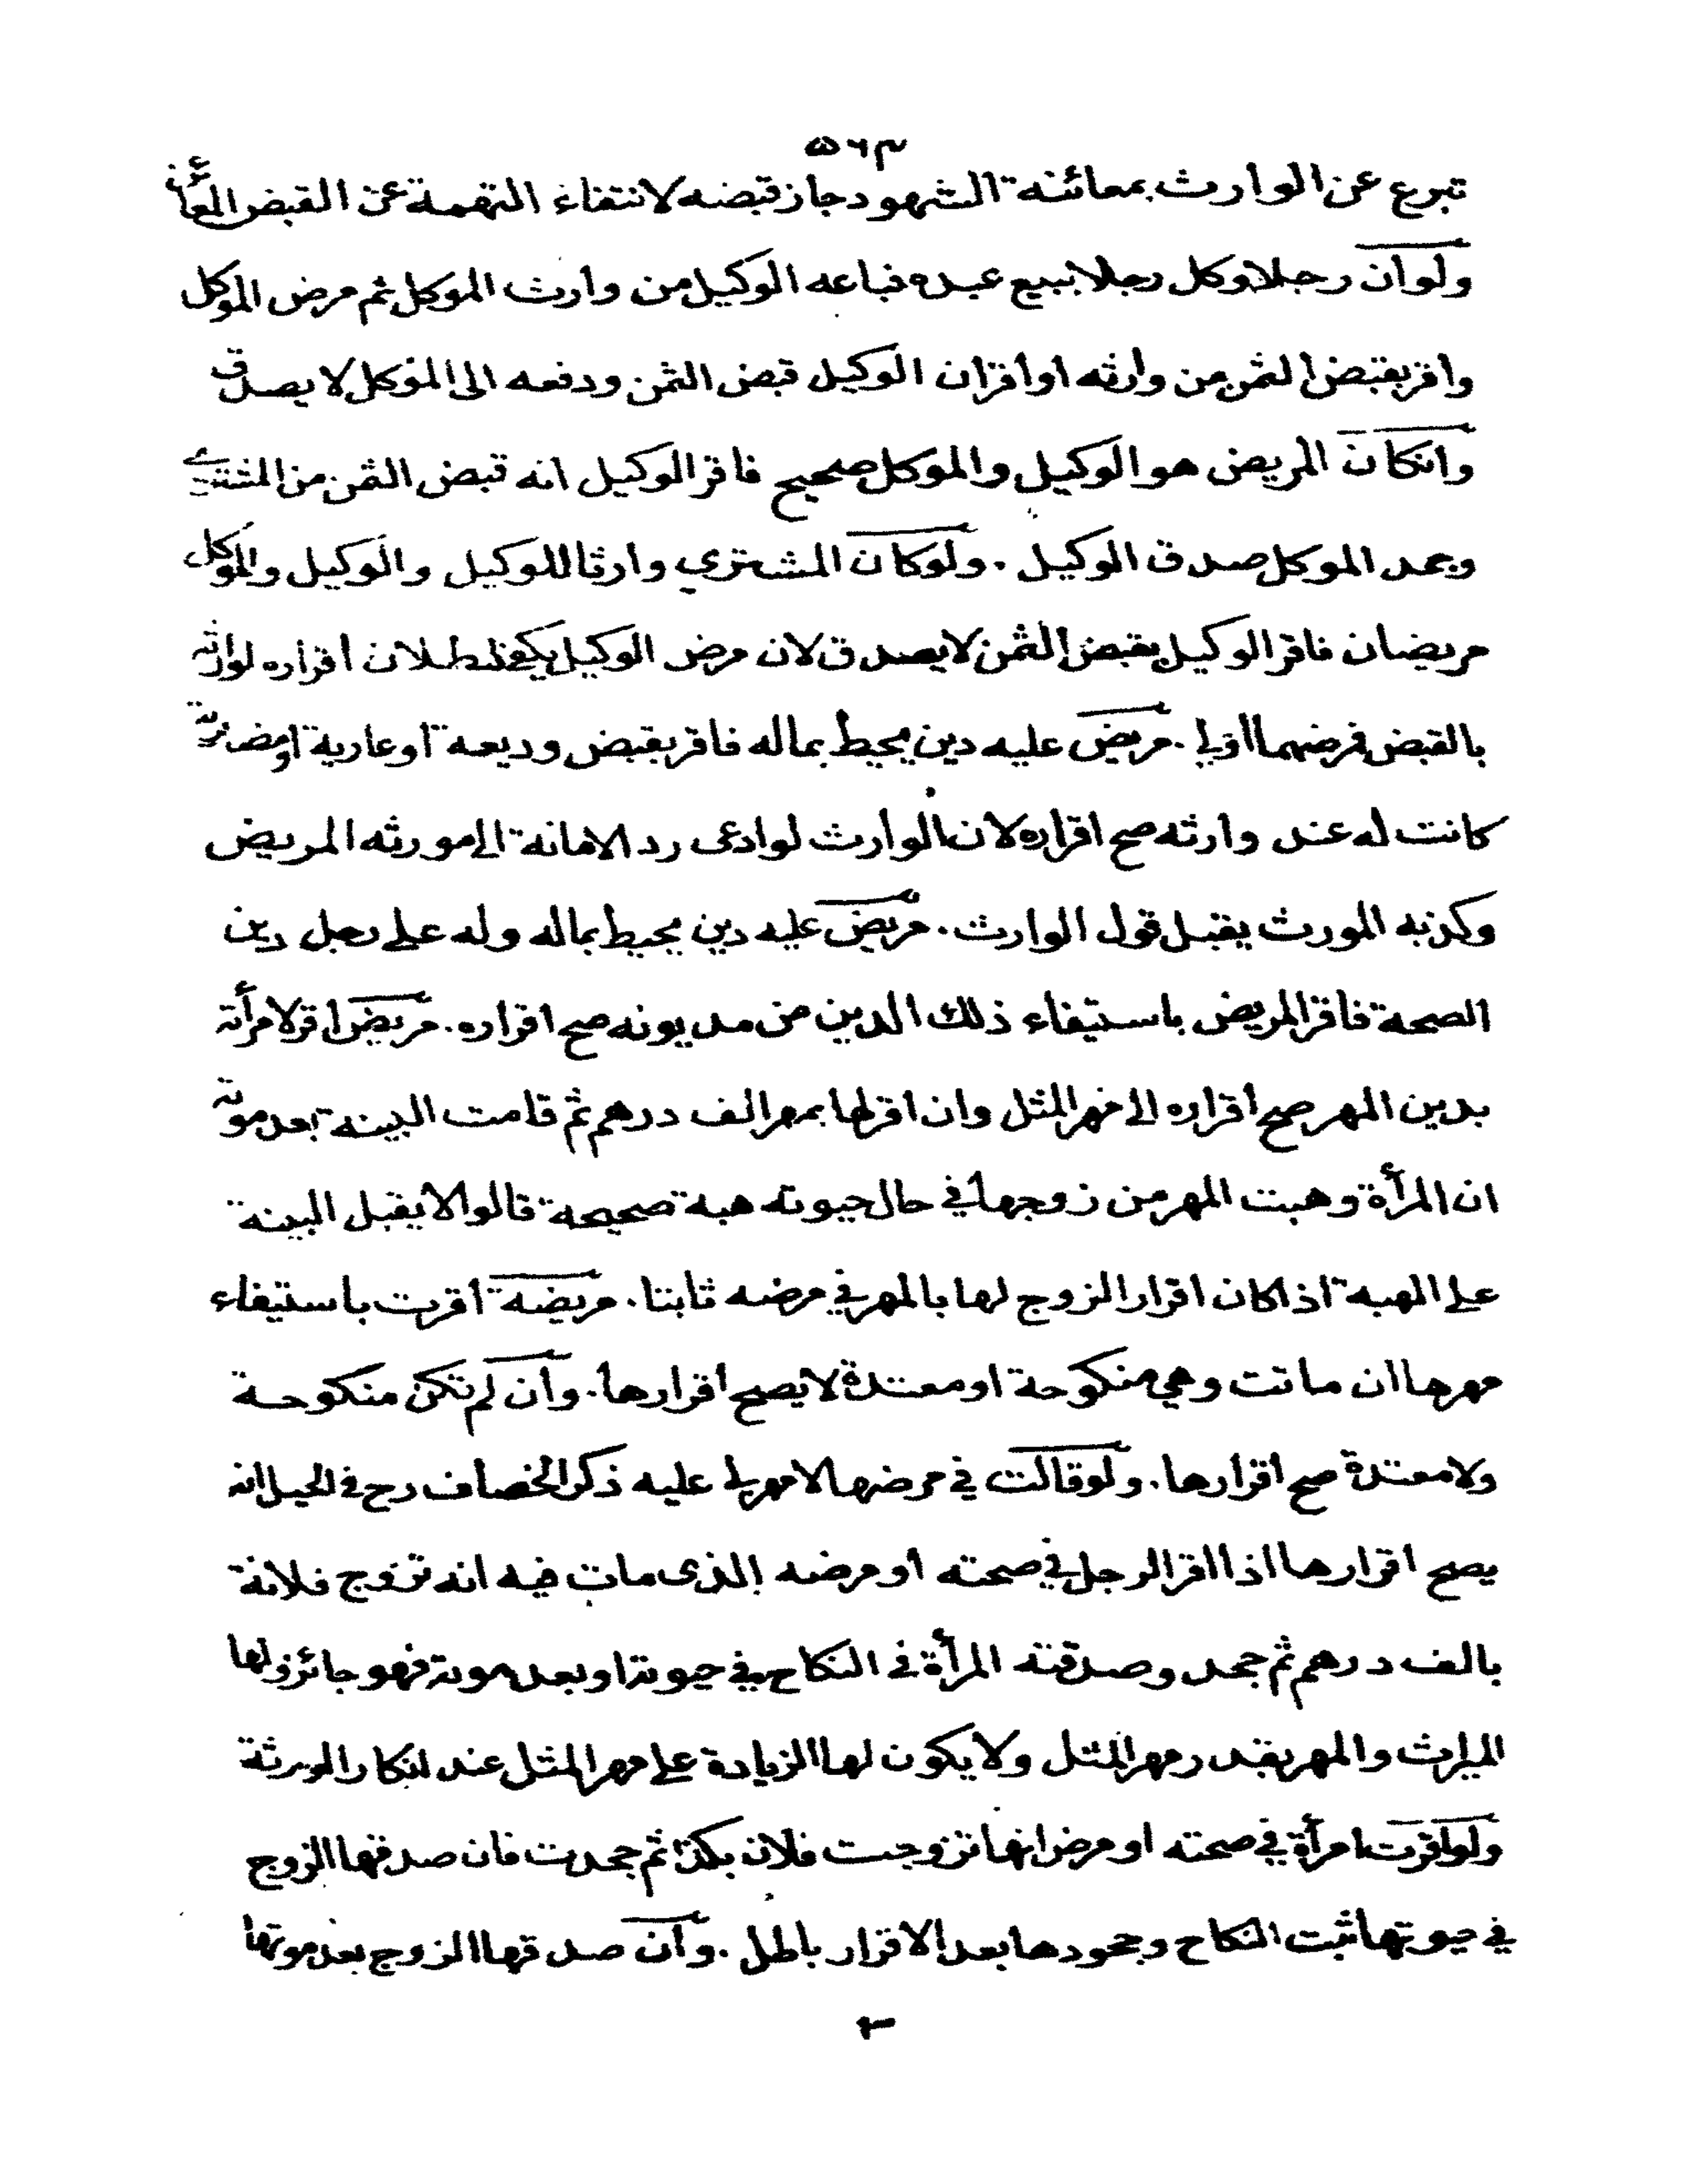 ٥٦٣
تبرع عن الوارث بمعائنة الشهود جاز قبضه لانتفاء التهمة عن القبض المعائن
ولوان رجلا وكل رجلا ببيع عبده فباعه الوكيل من وارث الموكل ثم مرض الموكل
واقر بقبض الثمن من وارثه او اقر ان الوكيل قبض الثمن ودفعه الى الموكل لا يصدق
وانكان المريض هو الوكيل والموكل صحيح فاقر الوكيل انه قبض الثمن من المشتري
وجحد الموكل صدق الوكيل . ولوكان المشتري وارثا للوكيل والوكيل والموكل
مريضان فاقر الوكيل بقبض الثمن لا يصدق لان مرض الوكيل يكفي لبطلان اقراره لوارثه
بالقبض فمرضهما اولى . مريض عليه دين يحيط بماله فاقر بقبض وديعة او عارية او مضاربة
كانت له عند وارثه صح اقراره لان الوارث لو ادعى رد الامانة الى مورثه المريض
وكذبه المورث يقبل قول الوارث . مريض عليه دين يحيط بماله وله على رجل دين
الصحة فاقر المريض باستيفاء ذلك الدين من مديونه صح اقراره . مريض اقر لامرأته
بدين المهر صح اقراره الى مهر المثل وان اقر لها بمهر الف درهم ثم قامت البينة بعد موته
ان المرأة وهبت المهر من زوجها في حال حيوته هبة صحيحة قالوا لا يقبل البينة
على الهبة اذا كان اقرار الزوج لها بالمهر في مرضه ثابتا . مريضة اقرت باستيفاء
مهرها ان ماتت وهي منكوحة او معتدة لا يصح اقرارها . وان لم تكن منكوحة
ولا معتدة صح اقرارها . ولو قالت في مرضها لا مهر لي عليه ذكر الخصاف رح في الحيل انه
يصح اقرارها اذا اقر الرجل في صحته او مرضه الذى مات فيه انه تزوج فلانة
بالف درهم ثم جحد وصدقته المرأة في النكاح في حيوته او بعد موته فهو جائز ولها
الميراث والمهر بقدر مهر المثل ولا يكون لها الزيادة على مهر المثل عند انكار الورثة
ولو اقرت امرأة في صحته او مرض انها تزوجت فلان بكذا ثم جحدت فان صدقها الزوج
في حيوتها ثبت النكاح وجحودها بعد الاقرار باطل . وان صدقها الزوج بعد موتها